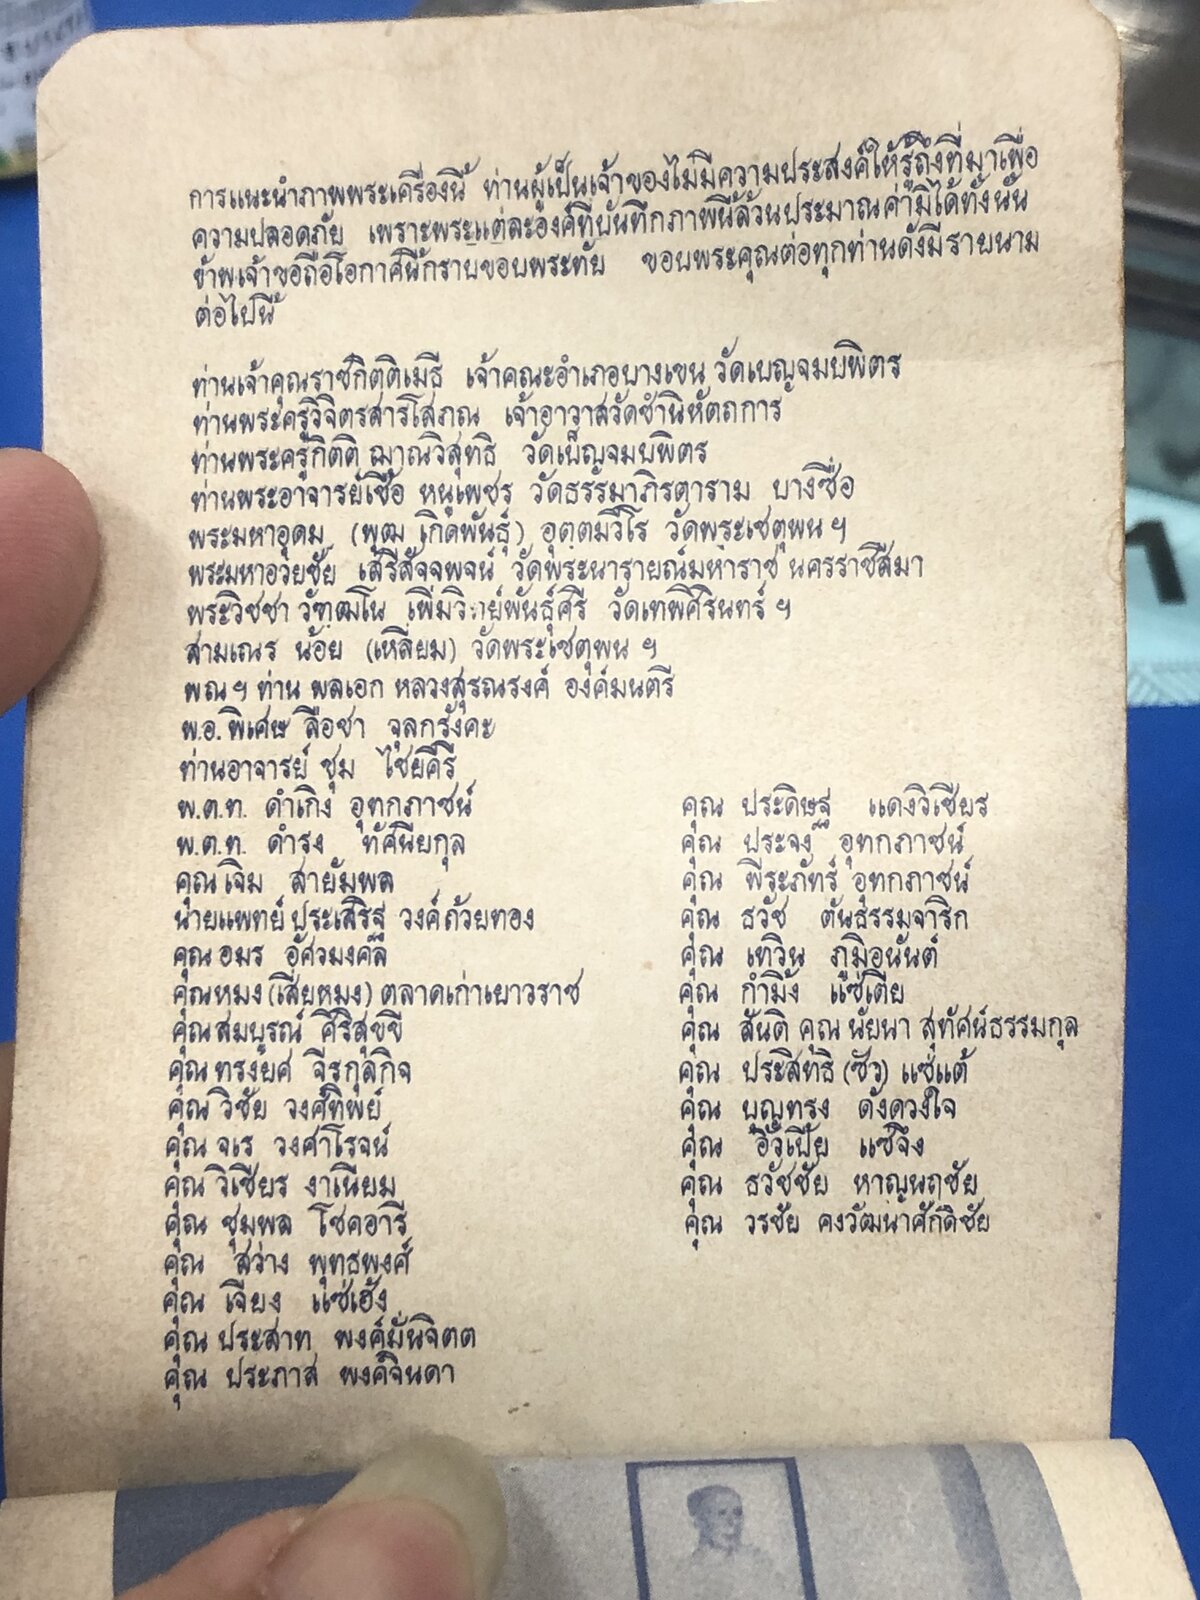 การแนะนำภาพพระเครื่องนี้ ท่านผู้เป็นเจ้าของไม่มีความประสงค์ให้รู้ถึงที่มาเพื่อ
ความปลอดภัย เพราะพระแต่ละองค์ที่บันทึกภาพนี้ล้วนประมาณค่ามิได้ทั้งนั้น
ข้าพเจ้าขอถือโอกาศนี้กราบขอบพระทัย ขอบพระคุณต่อทุกท่านดังมีรายนาม
ต่อไปนี้
ท่านเจ้าคุณราชกิตติเมธี เจ้าคณะอำเภอบางเขน วัดเบญจมบพิตร
ท่านพระครูวิจิตรสารโสภณ เจ้าอาวาสวัดชำนิหัตถการ
ท่านพระครูกิตติ ฌาณวิสุทธิ วัดเบ็ญจมบพิตร
ท่านพระอาจารย์เชื้อ หนูเพชร วัดธรรมาภิรตาราม บางซื่อ
พระมหาอุดม (พูฒ เกิดพันธุ์) อุตตมวีโร วัดพระเชตุพน ฯ
พระมหาอวยชัย เสรีสัจจพจน์ วัดพระนารายณ์มหาราช นครราชสีมา
พระวิชชา วัฑฒโน เพิ่มวิทย์พันธุ์ศรี วัดเทพศิรินทร์ ฯ
สามเณร น้อย (เหลี่ยม) วัดพระเชตุพน ฯ
พณฯ ท่าน พลเอก หลวงสุรณรงค์ องค์มนตรี
พ.อ. พิเศษ ลือชา จุลกรังคะ
ท่านอาจารย์ ชุม ไชยคีรี
พ.ต.ท. ดำเกิง อุทกภาชน์
พ.ต.ท. ดำรง ทัศนียกุล
คุณเจิม สายัมพล
นายแพทย์ ประเสริฐ วงศ์ถ้วยทอง
คุณอมร อัศวมงคล
คุณหมง (เสี่ยหมง) ตลาดเก่าเยาวราช
คุณสมบูรณ์ ศิริสุขขี
คุณทรงยศ จีรกุลกิจ
คุณวิชัย วงศ์ทิพย์
คุณจเร วงศาโรจน์
คุณวิเชียร งาเนียม
คุณ ชุมพล โชคอารี
คุณ สว่าง พุทธพงศ์
คุณ เจียง แซ่เฮ้ง
คุณ ประสาท พงค์มั่นจิตต
คุณ ประภาส พงค์จินดา
คุณ ประดิษฐ แดงวิเชียร
คุณ ประจง อุทกภาชน์
คุณ พีระภัทร์ อุทกภาชน์
คุณ ธวัช ตันธรรมจาริก
คุณ เทวิน ภูมิอนันต์
คุณ กำมิ้ง แซ่เตีย
คุณ สันติ คุณ นัยนา สุทัศน์ธรรมกุล
คุณ ประสิทธิ (ซัว) แซ่แต้
คุณ บุญทรง ดังดวงใจ
คุณ แซ่จึง
คุณ ธวัชชัย หาญนฤชัย
คุณ วรชัย คงวัฒนาศักดิชัย